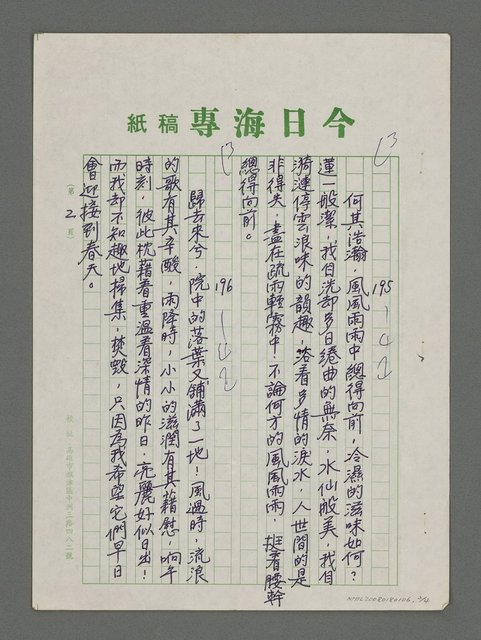 今日海專 稿紙
195
何其浩瀚,風風雨雨中總得向前,冷濕的滋味如何?
蓮一般潔,我自洗却多日綣曲的無奈,水仙般美,我自
漪漣停雲浪味的韻趣,含着多情的淚水,人世間的是
非得失,盡在疏雨輕霧中!不論何方的風風雨雨,挺着腰幹
總得向前。
196
歸去來兮,院中的落葉又鋪滿了一地!風過時,流浪
的歌有其辛酸,雨降時,小小的滋潤有其藉慰,响午
時刻,彼此枕藉着重溫着深情的昨日,亮麗好似日出!
而我却不知趣地掃集,焚燬,只因為我希望它們早日
會迎接到春天。
(第 2 頁)
校址:高雄市旗津區中洲三路四八二號